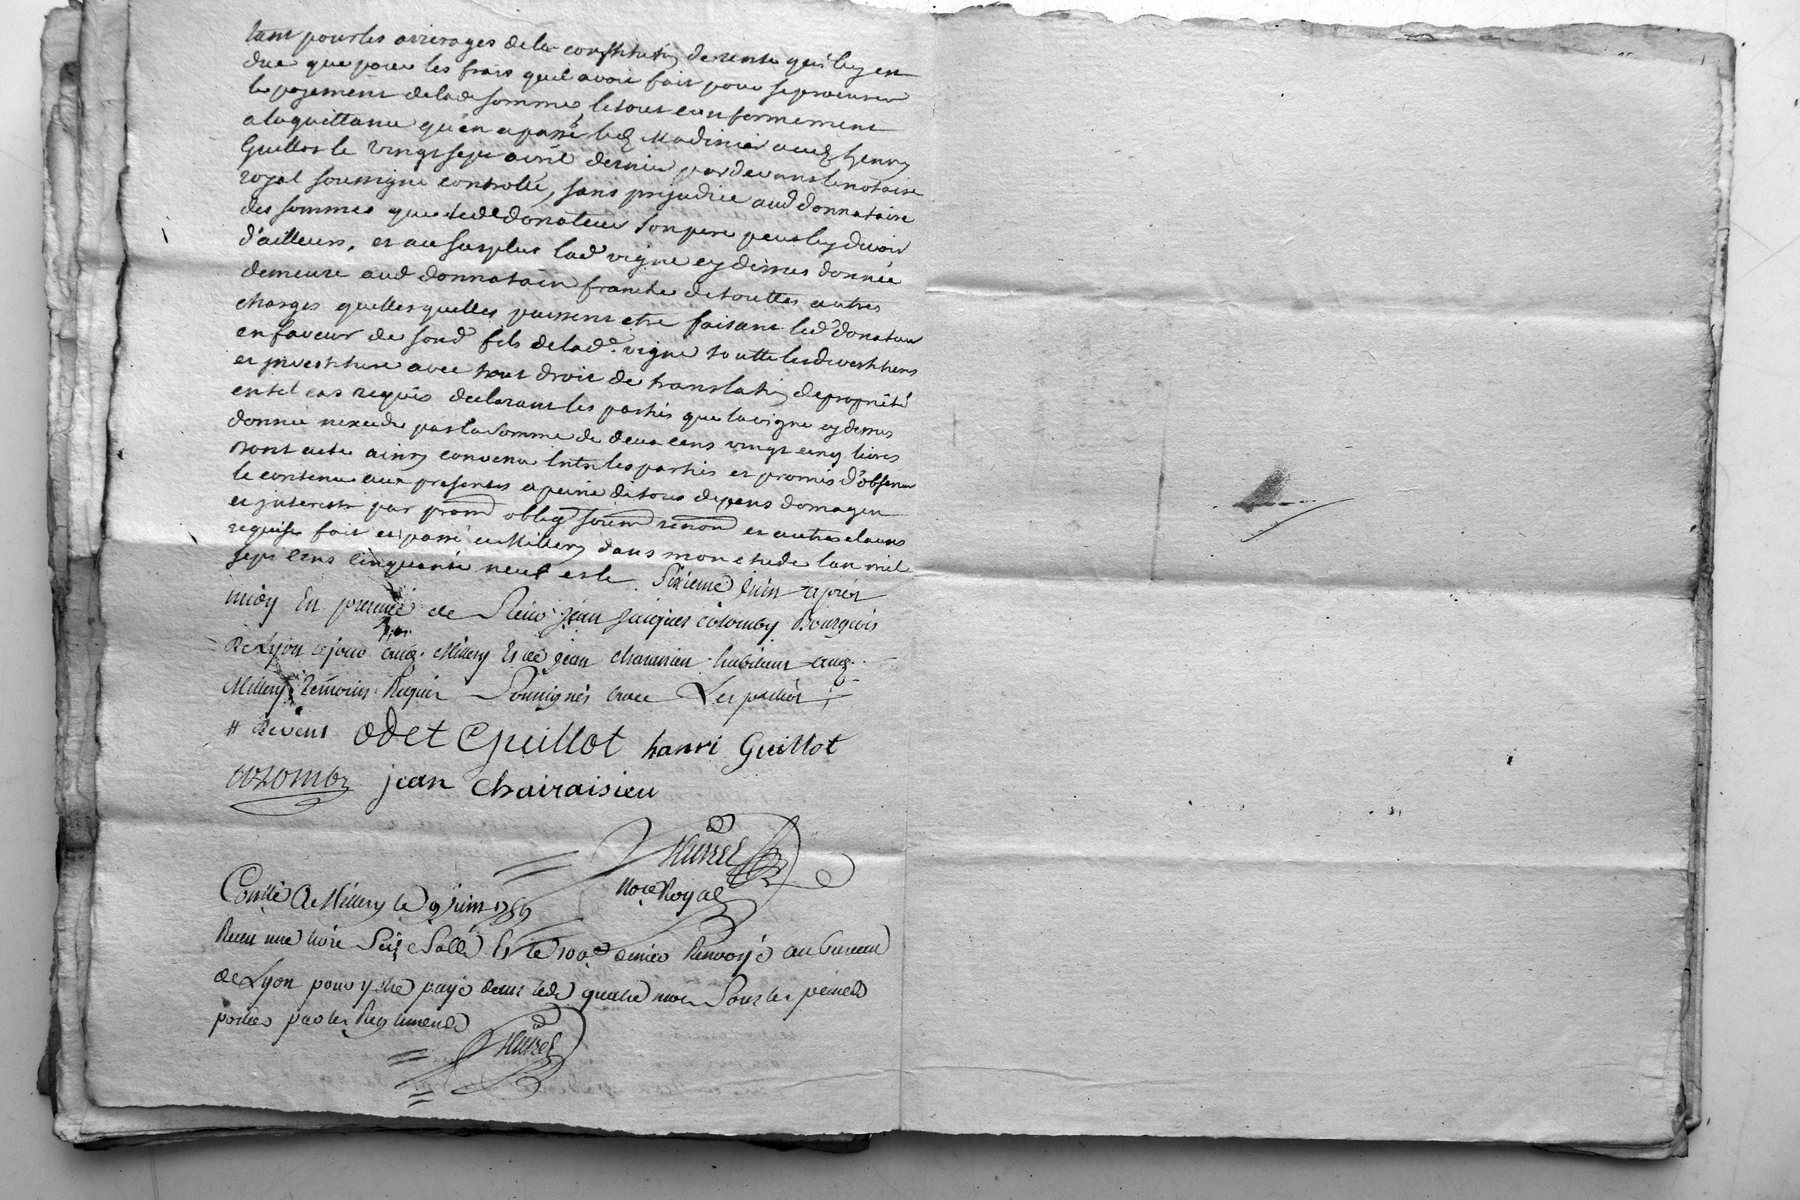 tant pour les arrerages de la constitution de rente qui luy en
due que pour les frais quil avoit fait pour se procurer
le payement de lad somme, le tout conformement
a la quittance qu'en a passé led Madinier aud henry
Guillot le vingt sept avril dernier par devant le notaire
royal soussigne controllé, sans prejudice aud donnataire
des sommes que led donateur son pere peut luy devoir
d'ailleurs, et au surplus lad vigne cy dessus donnée
demeure aud donnataire franche de touttes autres
charges quelles quelles puissent etre faisant led donateur
en faveur de sond fils de lad vigne toutte les devestitures
et investiture avec tout droit de translation de propriété
en tel cas requis declarant les parties que la vigne cy dessus
donnée nexcede pas la somme de deux cens vingt cinq livres
dont acte ainsy convenu entre les parties et promis d'observer
le contenu aux presentes a peine de tous depens domages
et interests par prom oblig soum renon et autres clauses
requises fait et passé a Millery dans mon etude l'an mil
sept cens cinquante neuf et le sixieme juin apres
midy En presence de Sieur jean jacques colomby Bourgeois
de Lyon # aud. Millery et de jean Chavaisieu habitant aud.
Millery temoins Requis Soussignés avec Les parties
# odet Guillot henri Guillot
colomby jean Chavaisieu
Nore Royal
Conllé A Millery le 9 juin 1759
Receu une livre Seize Sols Et le 100e denier Renvoyé au bureau
de Lyon pour y etre payé dans led quatre mois Sous les peines
portées par les Reglements